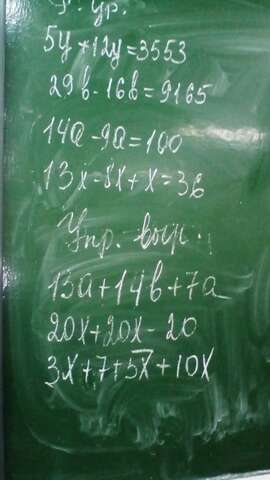 Р. ур.
5y + 12y = 3553
29в - 16в = 9165
14a - 9a = 100
13x - 8x + x = 36
Упр. выр.
13a + 14в + 7a
20x + 20x - 20
3x + 7 + 5x + 10x